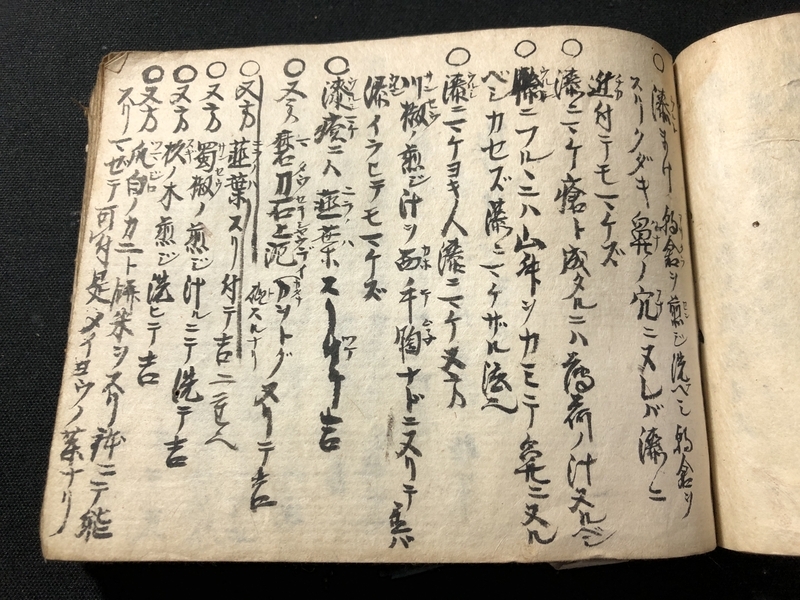 ○漆まけ 鶏舎ヲ煎ジ洗ベシ 鶏舎ヲ
スリクダキ鼻ノ穴ニヌレバ漆ニ
近付テモマケズ
○漆ニマケ瘡ト成タルニハ薄荷ノ汁ヌルベシ
○漆ニフルヽニハ山舛ヲカミテ鼻ニヌル
ベシカセズ漆ニマケザル法也
○漆ニマケヨキ人漆ニマケ又方
川椒ノ煎ジ汁ヲ面手胸ナドニヌリテ
漆イラヒテモマケズ
○漆瘡ニハ韮葉スリ付テ吉
○又方 磨刀石上泥 ヌリテ吉
○又方 韮葉スリ付テ吉
○又方 蜀椒ノ煎ジ汁ニテ洗テ吉
○又方 杉ノ木煎ジ洗ヒテ吉
○又方 ノカニト糯米ヲスリ鉢ニテ能
スリマゼテ可付是メイヨウノ薬ナリ